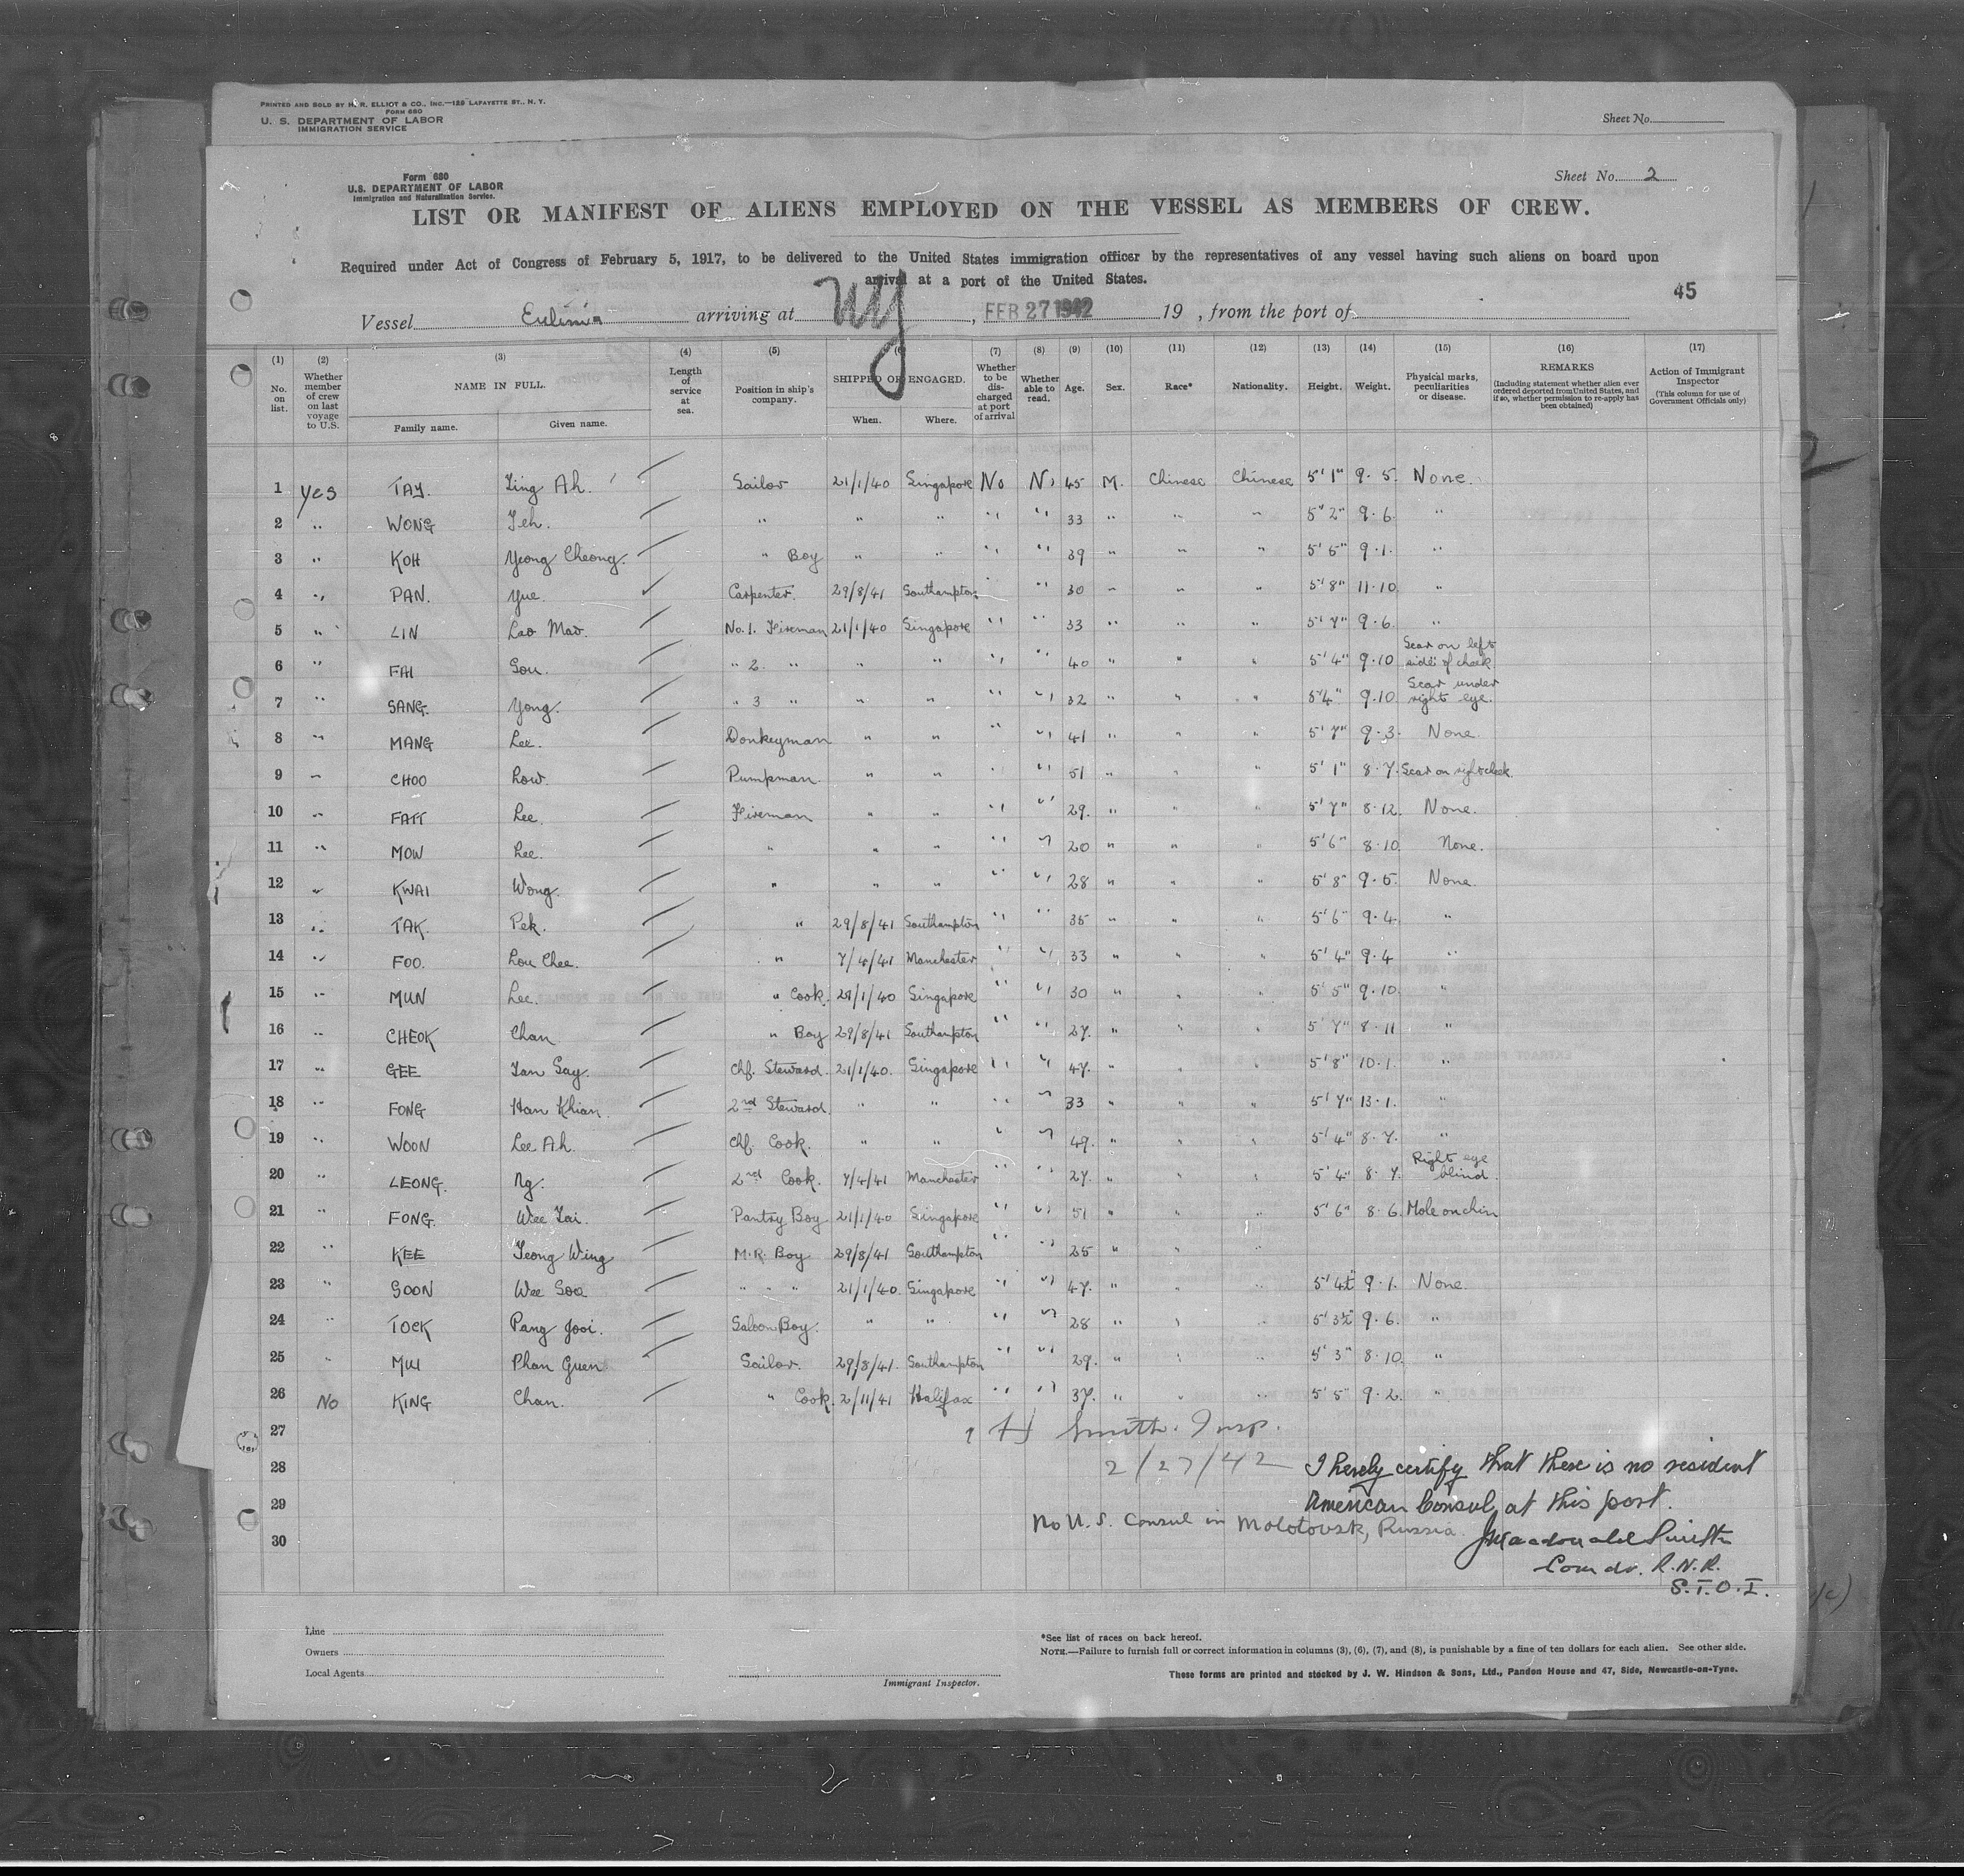 PRINTED AND SOLD BY H. R. ELLIOT & CO., INC.—129 LAFAYETTE ST., N. Y.
FORM 680
U. S. DEPARTMENT OF LABOR
IMMIGRATION SERVICE
Sheet No.
Form 680
U.S. DEPARTMENT OF LABOR
Immigration and Naturalization Service.
Sheet No. 2
LIST OR MANIFEST OF ALIENS EMPLOYED ON THE VESSEL AS MEMBERS OF CREW.
Required under Act of Congress of February 5, 1917, to be delivered to the United States immigration officer by the representatives of any vessel having such aliens on board upon
arrival at a port of the United States.
45
Vessel Eulima arriving at NY, FEB 27 1942 19 , from the port of
(1) (2) (3) (4) (5) (6) (7) (8) (9) (10) (11) (12) (13) (14) (15) (16) (17)
No. on list. Whether member of crew on last voyage to U.S. NAME IN FULL. Family name. Given name. Length of service at sea. Position in ship's company. SHIPPED OR ENGAGED. When. Where. Whether to be discharged at port of arrival Whether able to read. Age. Sex. Race* Nationality. Height. Weight. Physical marks, peculiarities or disease. REMARKS (Including statement whether alien ever ordered deported from United States, and if so, whether permission to re-apply has been obtained) Action of Immigrant Inspector (This column for use of Government Officials only)
1 yes TAY. Ting Ah. Sailor 21/1/40 Singapore No No 45 M. Chinese Chinese 5' 1" 9.5. None.
2 " WONG Teh. " " " " " 33 " " " 5' 2" 9.6. "
3 " KOH Yeong Cheong. " Boy " " " " 39 " " " 5' 5" 9.1. "
4 " PAN. Yue. Carpenter. 29/8/41 Southampton " " 30 " " " 5' 8" 11.10. "
5 " LIN Lao Mao. No.1. Fireman 21/1/40 Singapore " " 33 " " " 5' 7" 9.6. "
6 " FAI Sou. " 2. " " " " " 40 " " " 5' 4" 9.10 Scar on left side of cheek.
7 " SANG. Yong. " 3 " " " " " 32 " " " 5' 4" 9.10. Scar under right eye.
8 " MANG Lee. Donkeyman " " " " 41 " " " 5' 7" 9.3. None.
9 " CHOO Low. Pumpman. " " " " 51 " " " 5' 1" 8.7. Scar on right cheek.
10 " FATT Lee. Fireman " " " " 29. " " " 5' 7" 8.12. None.
11 " MOW Lee. " " " " " 20 " " " 5' 6" 8.10. None.
12 " KWAI Wong. " " " " " 28 " " " 5' 8" 9.5. None.
13 " TAK. Pek. " 29/8/41 Southampton " " 35 " " " 5' 6" 9.4. "
14 " FOO. Lou Chee. " 7/4/41 Manchester " " 33 " " " 5' 4" 9.4 "
15 " MUN Lee. " Cook. 21/1/40 Singapore " " 30 " " " 5' 5" 9.10. "
16 " CHEOK Chan " Boy 29/8/41 Southampton " " 27. " " " 5' 7" 8.11 "
17 " GEE Tan Say. Chf. Steward. 21/1/40. Singapore " " 47. " " " 5' 8" 10.1. "
18 " FONG Han Khian. 2nd Steward. " " " " 33 " " " 5' 7" 13.1. "
19 " WOON Lee Ah. Chf. Cook. " " " " 49. " " " 5' 4" 8.7. "
20 " LEONG. Ng. 2nd Cook. 7/4/41 Manchester " " 27. " " " 5' 4" 8.7. Right eye blind.
21 " FONG. Wee Tai. Pantry Boy 21/1/40 Singapore " " 51 " " " 5' 6" 8.6. Mole on chin
22 " KEE Teong Wing M.R. Boy 29/8/41 Southampton " " 25 " " "
23 " SOON Wee Soo " " " 21/1/40. Singapore " " 47. " " " 5' 4½" 9.1. None.
24 " TOCK Pang Jooi. Saloon Boy. " " " " 28 " " " 5' 3½" 9.6. "
25 " MUI Phan Guen Sailor. 29/8/41. Southampton " " 29. " " " 5' 3" 8.10. "
26 No KING Chan. " Cook. 2/11/41 Halifax " " 37. " " " 5' 5" 9.2. "
27 Smith. Insp.
28 2/27/42 I hereby certify that there is no resident
29 American Consul at this port.
No U.S. Consul in Molotovsk, Russia.
30 J Macdonald Smith
Comdr. R.N.R.
S.T.O.I.
Line
Owners
Local Agents
Immigrant Inspector.
*See list of races on back hereof.
NOTE.—Failure to furnish full or correct information in columns (3), (6), (7), and (8), is punishable by a fine of ten dollars for each alien. See other side.
These forms are printed and stocked by J. W. Hindson & Sons, Ltd., Pandon House and 47, Side, Newcastle-on-Tyne.